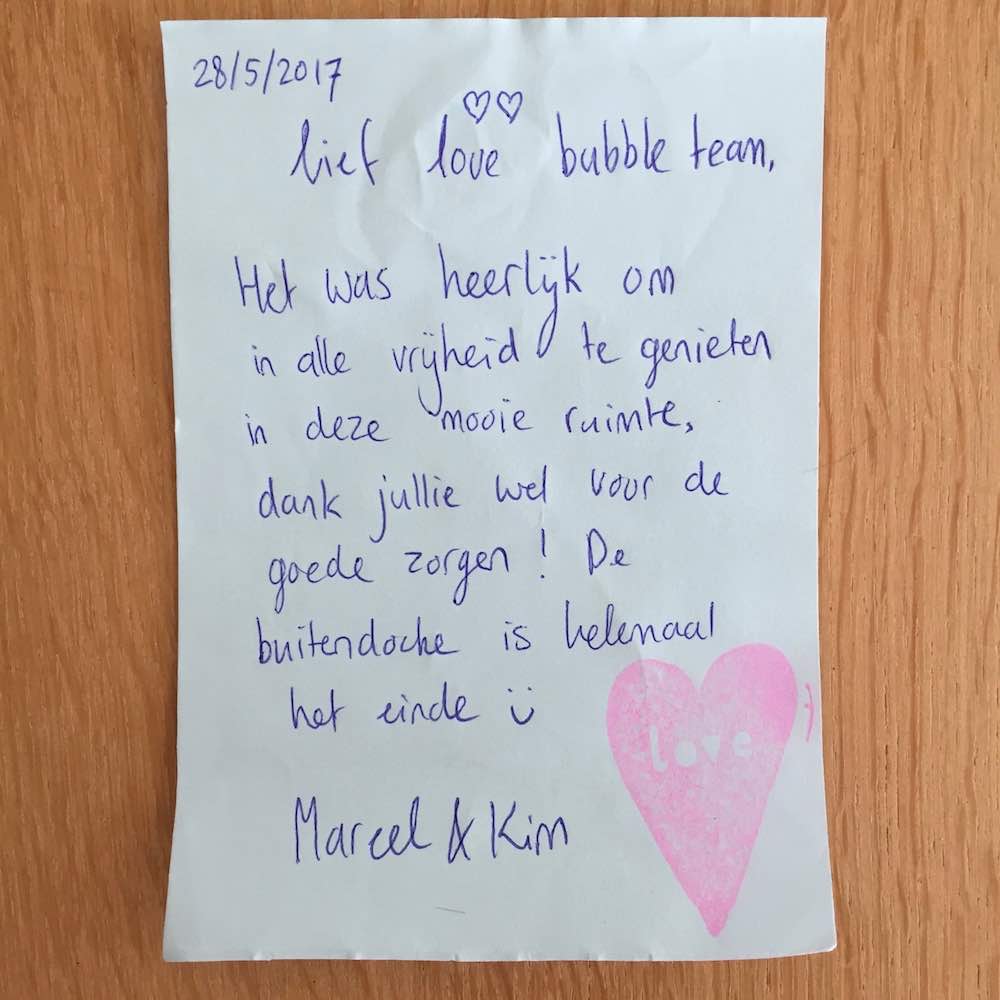 28/5/2017
♡♡
lief love bubble team,
Het was heerlijk om
in alle vrijheid te genieten
in deze mooie ruimte,
dank jullie wel voor de
goede zorgen! De
buitendoche is helemaal
het einde ü
Marcel & Kim
love